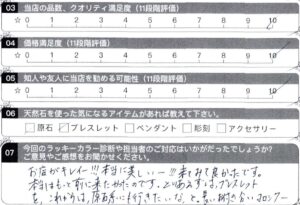 03 当店の品数、クオリティ満足度（11段階評価）
☆ 0 1 2 3 4 5 6 7 8 9 10
04 価格満足度（11段階評価）
☆ 0 1 2 3 4 5 6 7 8 9 10
05 知人や友人に当店を勧める可能性（11段階評価）
☆ 0 1 2 3 4 5 6 7 8 9 10
06 天然石を使った気になるアイテムがあれば教えて下さい。
□原石 ☑ブレスレット □ペンダント □彫刻 □アクセサリー
07 今回のラッキーカラー診断や担当者のご対応はいかがだったでしょうか？
ご意見やご感想をお聞かせください。
お店がキレイ!!!本当に美しい…!!!来れて良かったです。
本当はもっと前に来たかったのです。とりあえずは、ブレスレット
を、これからは、原石